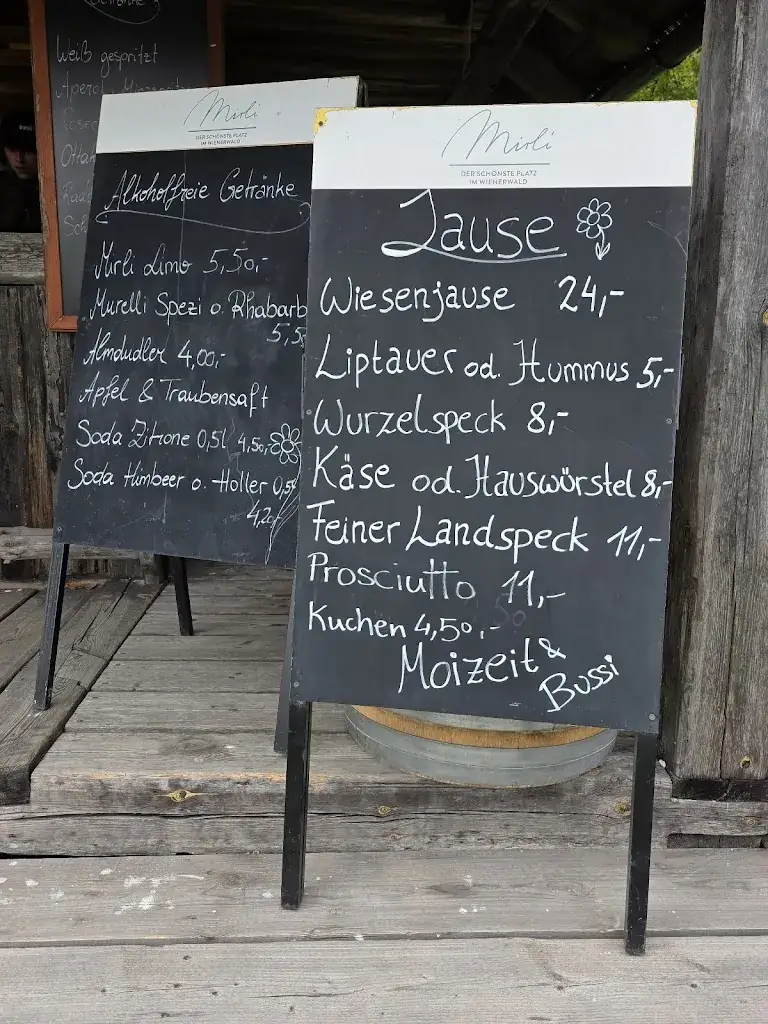 Weiß gespritzt
Aperol
Mirli
DER SCHÖNSTE PLATZ
IM WIENERWALD
Alkoholfreie Getränke
Mirli Limo 5,50,-
Murelli Spezi o. Rhabarb
5,5
Almdudler 4,00,-
Apfel & Traubensaft
Soda Zitrone 0,5l 4,50,-
Soda Himbeer o. Holler 0,5l
4,20
Mirli
DER SCHÖNSTE PLATZ
IM WIENERWALD
Jause
Wiesenjause 24,-
Liptauer od. Hummus 5,-
Wurzelspeck 8,-
Käse od. Hauswürstel 8,-
Feiner Landspeck 11,-
Prosciutto 11,-
Kuchen 4,50,-
Moizeit &
Bussi